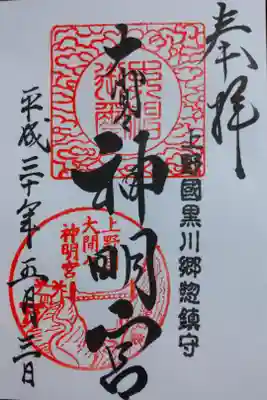 奉拝
上野國黒川郷惣鎮守
大間々
神明宮
平成三十年五月三日
上野
大間々
神明宮